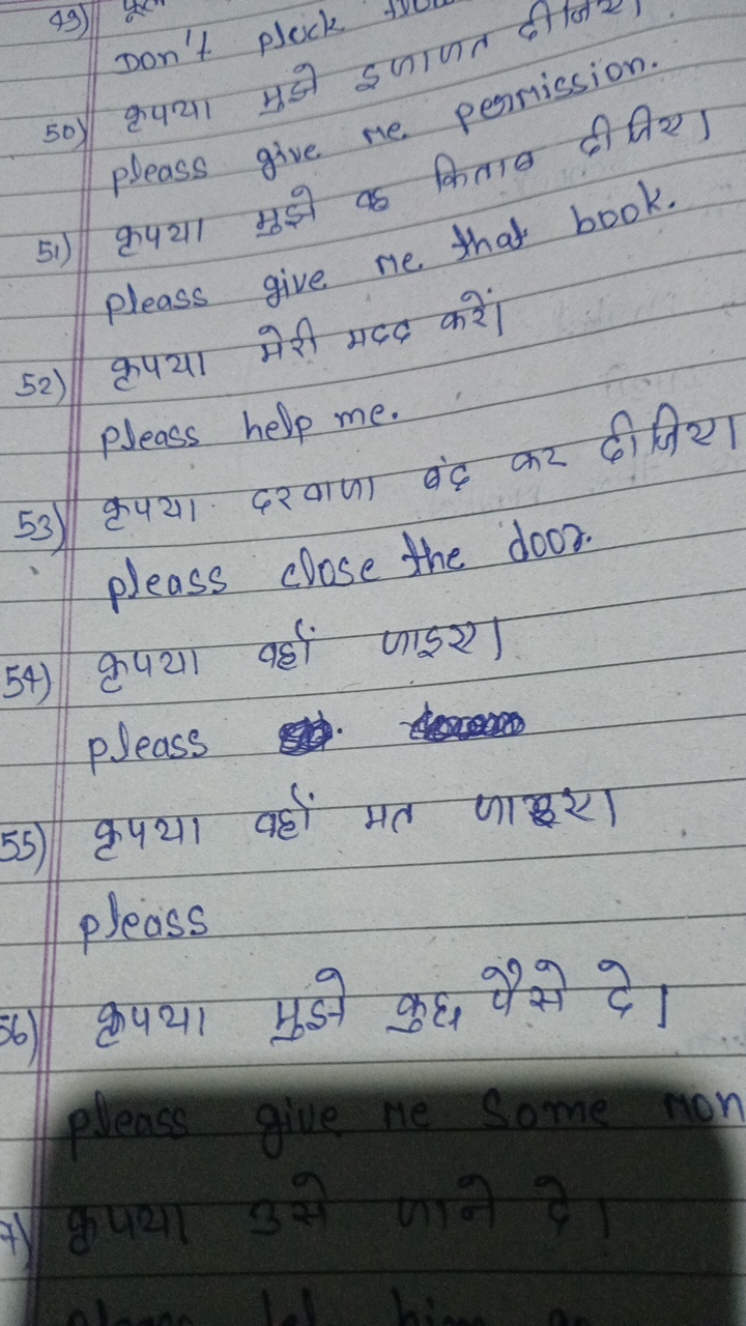 49) फूल
Don't pluck
50) कृपया मुझे इजाजत दीजिए।
pleass give me permission.
51) कृपया मुझे वह किताब दीजिए।
pleass give me that book.
52) कृपया मेरी मदद करें।
pleass help me.
53) कृपया दरवाजा बंद कर दीजिए।
pleass close the door.
54) कृपया वहाँ जाइए।
pleass
55) कृपया वहाँ मत जाइए।
pleass
56) कृपया मुझे कुछ पैसे दे।
pleass give me some mon
7) कृपया उसे जाने दे।
please let him go